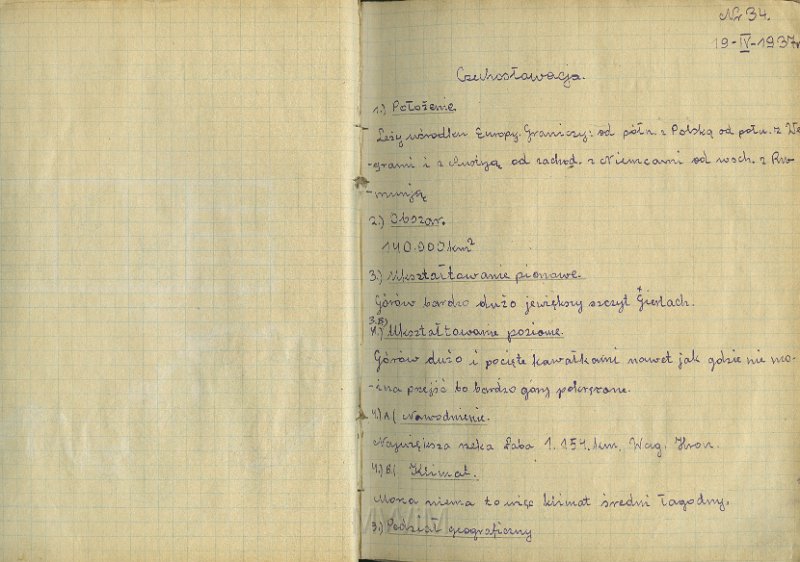 Nr 34.
19-IV-1937r
Czechosławacja.
1.) Położenie.
Leży wśrodku Europy. Graniczy: od półn. z Polską od połu. z We-
-grami i z Austyją od zachod. z Niemcami od wsch. z Ru-
-munją
2.) Obszar.
140.000 km²
3.) Ukształtowanie pionowe.
Górów bardzo dużo jewiększy szczyt Gierlach.
3.B)
4.) Ukształtowanie poziome.
Górów dużo i pocięte kawałkami nawet jak gdzie nie mo-
-żna przejść bo bardzo góry pokręcone.
4.) A( Nawodnienie.
Największa rzeka Łaba 1.154. km, Wag. Hron.
4.) B( Klimat.
Moża niema to więc klimat średni łagodny.
5.) Podział geograficzny